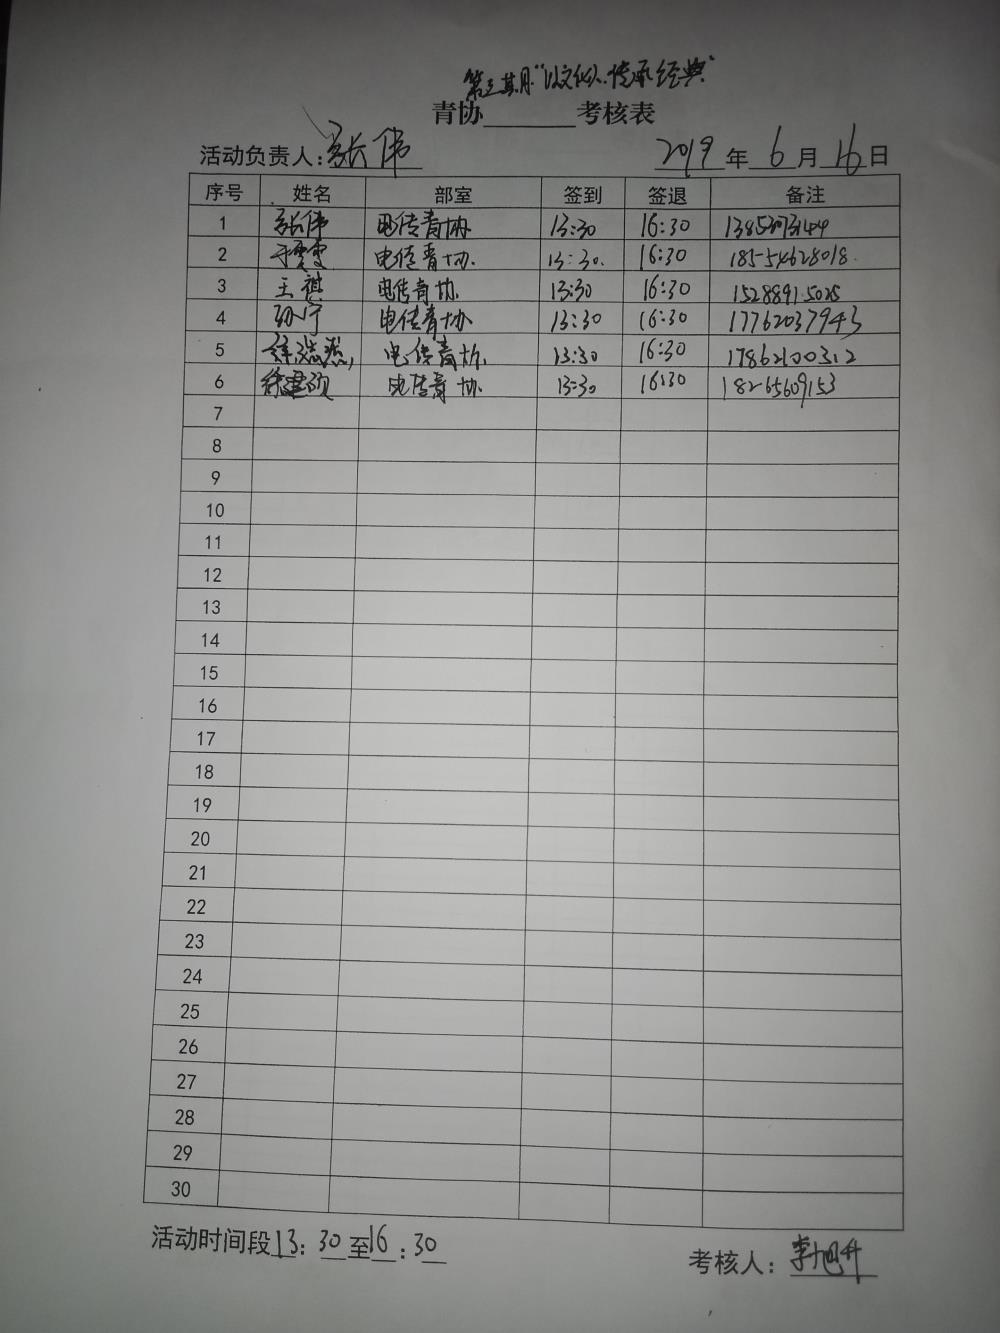 第三期"以文化人.传承经典"
青协 考核表
活动负责人:张伟 2019年6月16日
序号 姓名 部室 签到 签退 备注
1 张伟 电传青协 13:30 16:30
2 电传青协. 13:30. 16:30 18554628018.
3 王祺 电传青协. 13:30 16:30
4 孙宁 电传青协 13:30 16:30 17762037943
5 电传青协. 13:30 16:30 17862100312
6 徐建硕 电传青协 13:30 16:30 18265609153
7
8
9
10
11
12
13
14
15
16
17
18
19
20
21
22
23
24
25
26
27
28
29
30
活动时间段13:30至16:30
考核人:李旭升